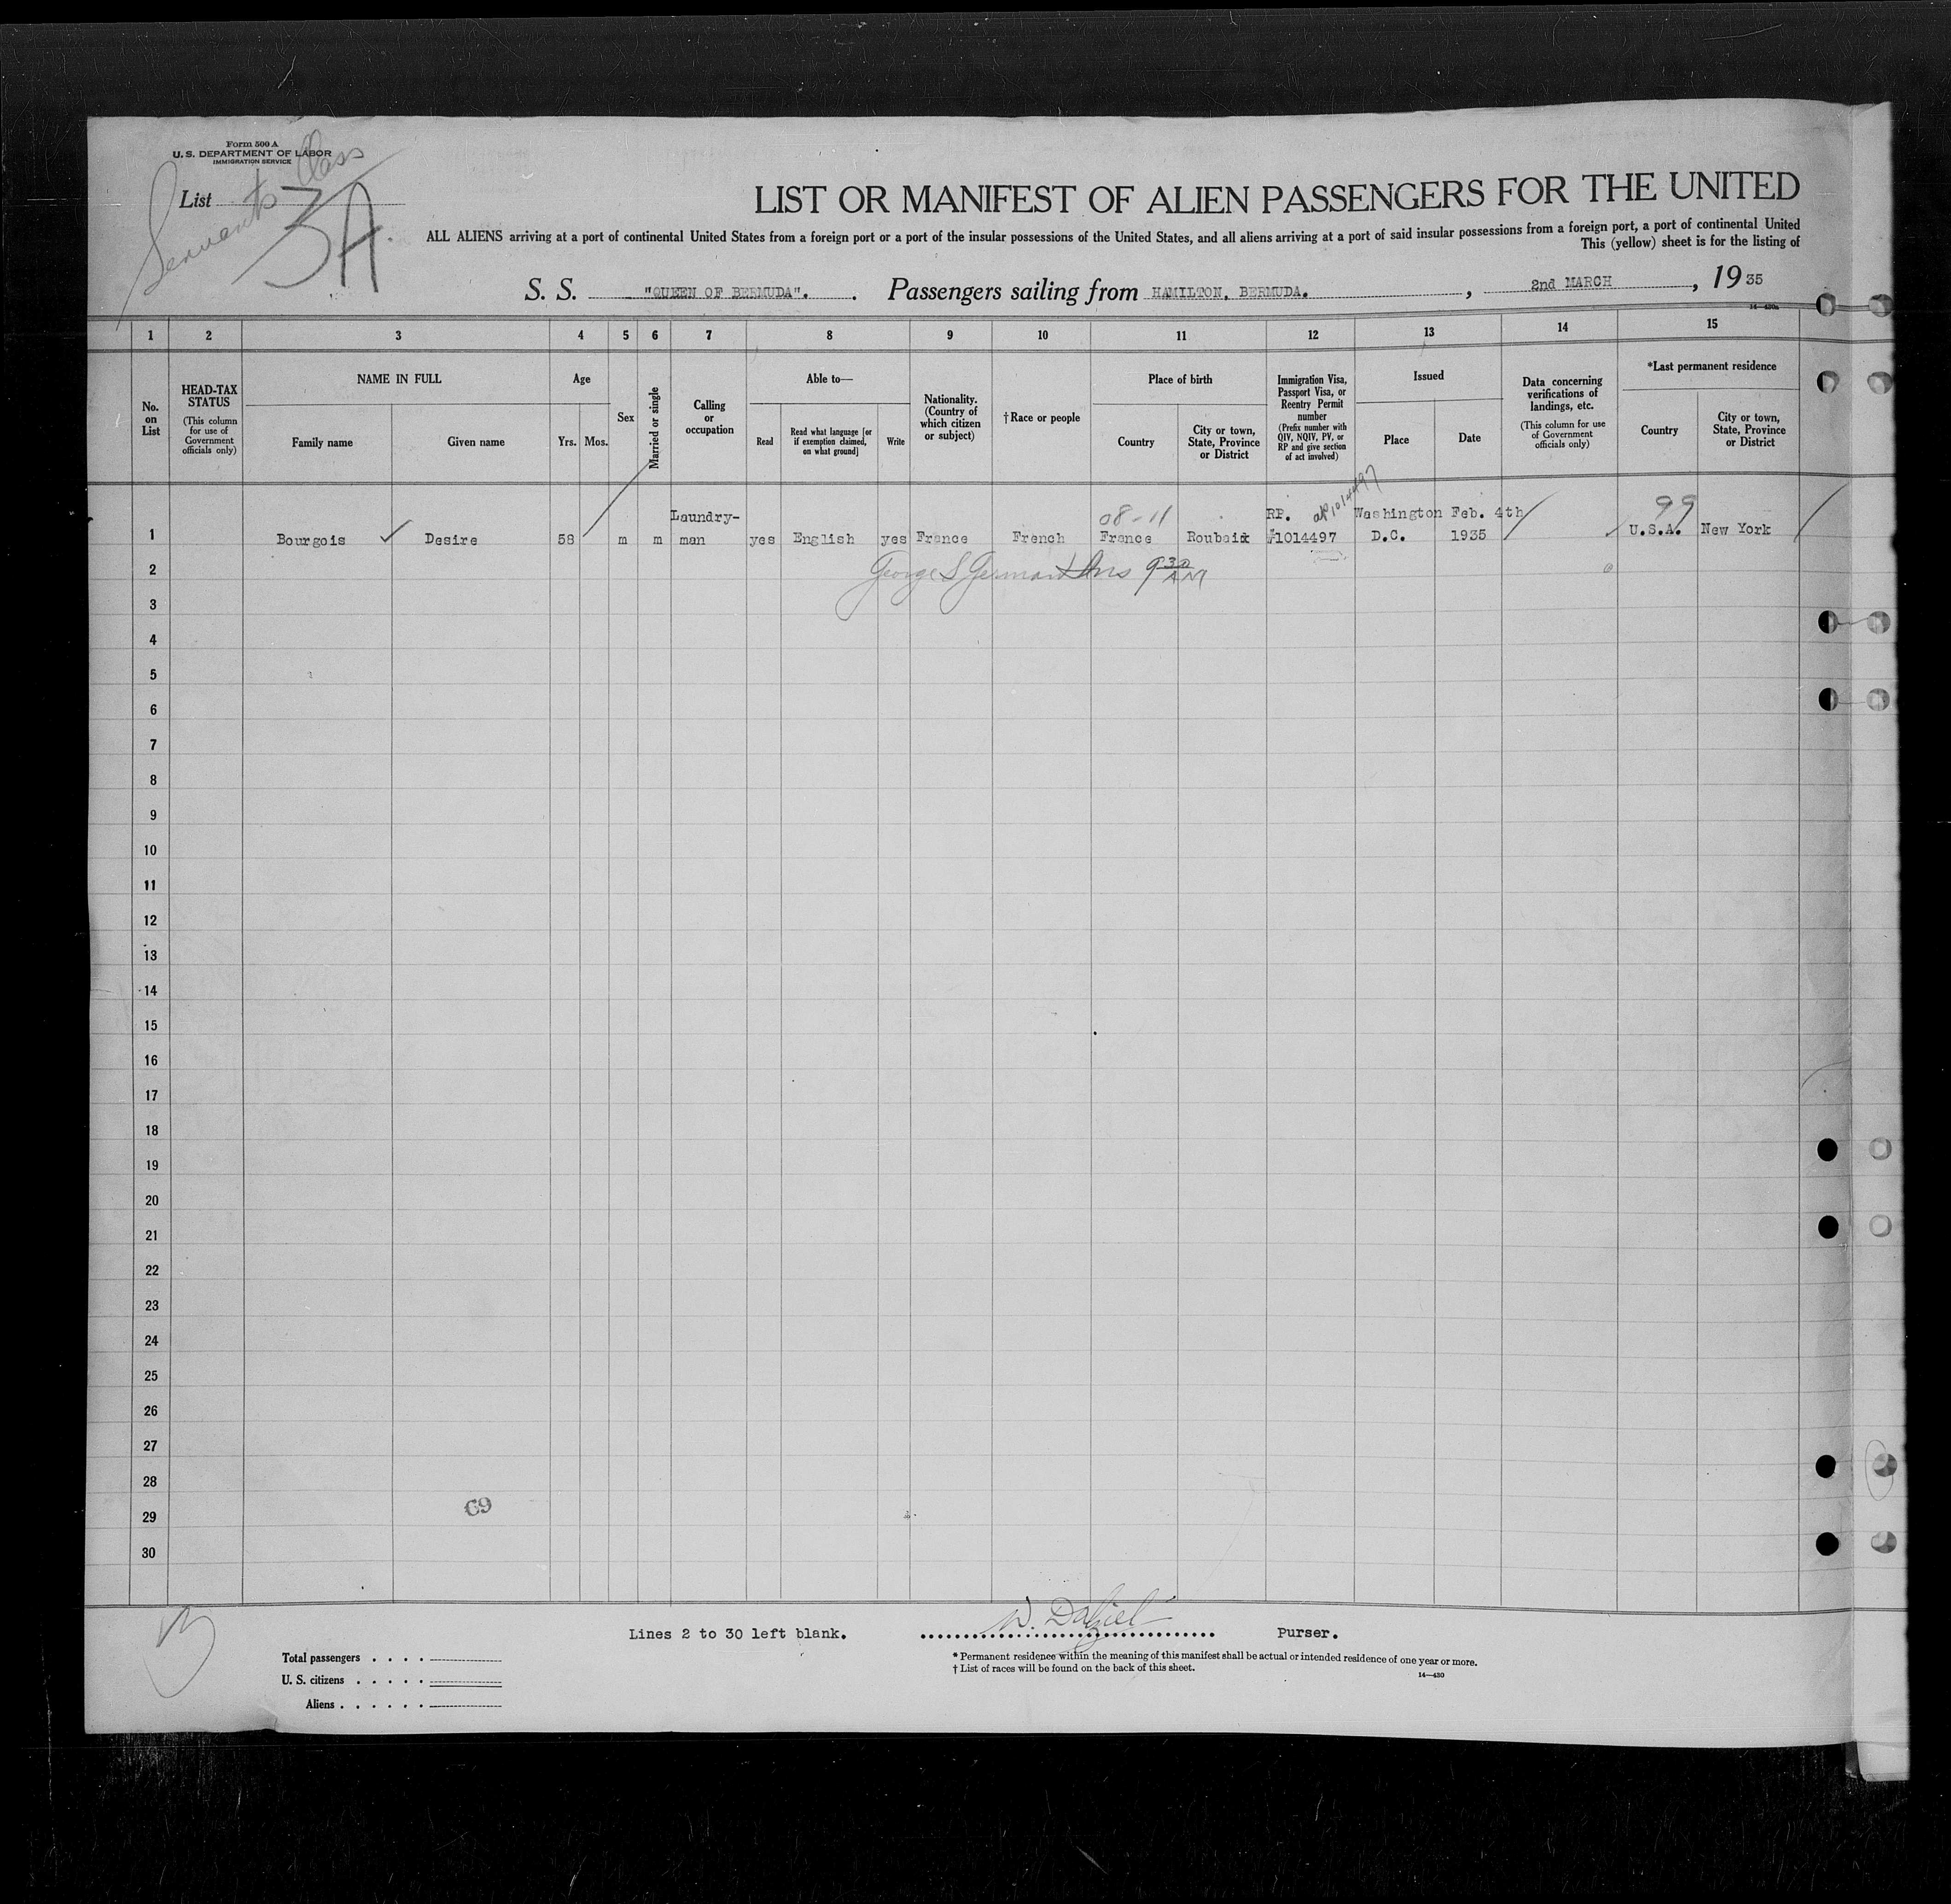 Form 500 A
U. S. DEPARTMENT OF LABOR
IMMIGRATION SERVICE
Servants Class
List 3A.
LIST OR MANIFEST OF ALIEN PASSENGERS FOR THE UNITED
ALL ALIENS arriving at a port of continental United States from a foreign port or a port of the insular possessions of the United States, and all aliens arriving at a port of said insular possessions from a foreign port, a port of continental United
This (yellow) sheet is for the listing of
S. S. "QUEEN OF BERMUDA". . Passengers sailing from HAMILTON, BERMUDA. , 2nd MARCH , 19 35
1 2 3 4 5 6 7 8 9 10 11 12 13 14 15
No. on List
HEAD-TAX STATUS
(This column for use of Government officials only)
NAME IN FULL
Family name
Given name
Age
Yrs. Mos.
Sex
Married or single
Calling or occupation
Able to—
Read
Read what language [or if exemption claimed, on what ground]
Write
Nationality. (Country of which citizen or subject)
† Race or people
Place of birth
Country
City or town, State, Province or District
Immigration Visa, Passport Visa, or Reentry Permit number
(Prefix number with QIV, NQIV, PV, or RP and give section of act involved)
Issued
Place
Date
Data concerning verifications of landings, etc.
(This column for use of Government officials only)
*Last permanent residence
Country
City or town, State, Province or District
1 Bourgois Desire 58 m m Laundry-man yes English yes France French 08-11 France Roubaix RP. #1014497 Washington D.C. Feb. 4th 1935 99 U.S.A. New York
2 9 30 AM
3
4
5
6
7
8
9
10
11
12
13
14
15
16
17
18
19
20
21
22
23
24
25
26
27
28
29
30
69
Lines 2 to 30 left blank.
W. Dalziel Purser.
Total passengers . . . .
U. S. citizens . . . . .
Aliens . . . . . .
* Permanent residence within the meaning of this manifest shall be actual or intended residence of one year or more.
† List of races will be found on the back of this sheet.
14—430